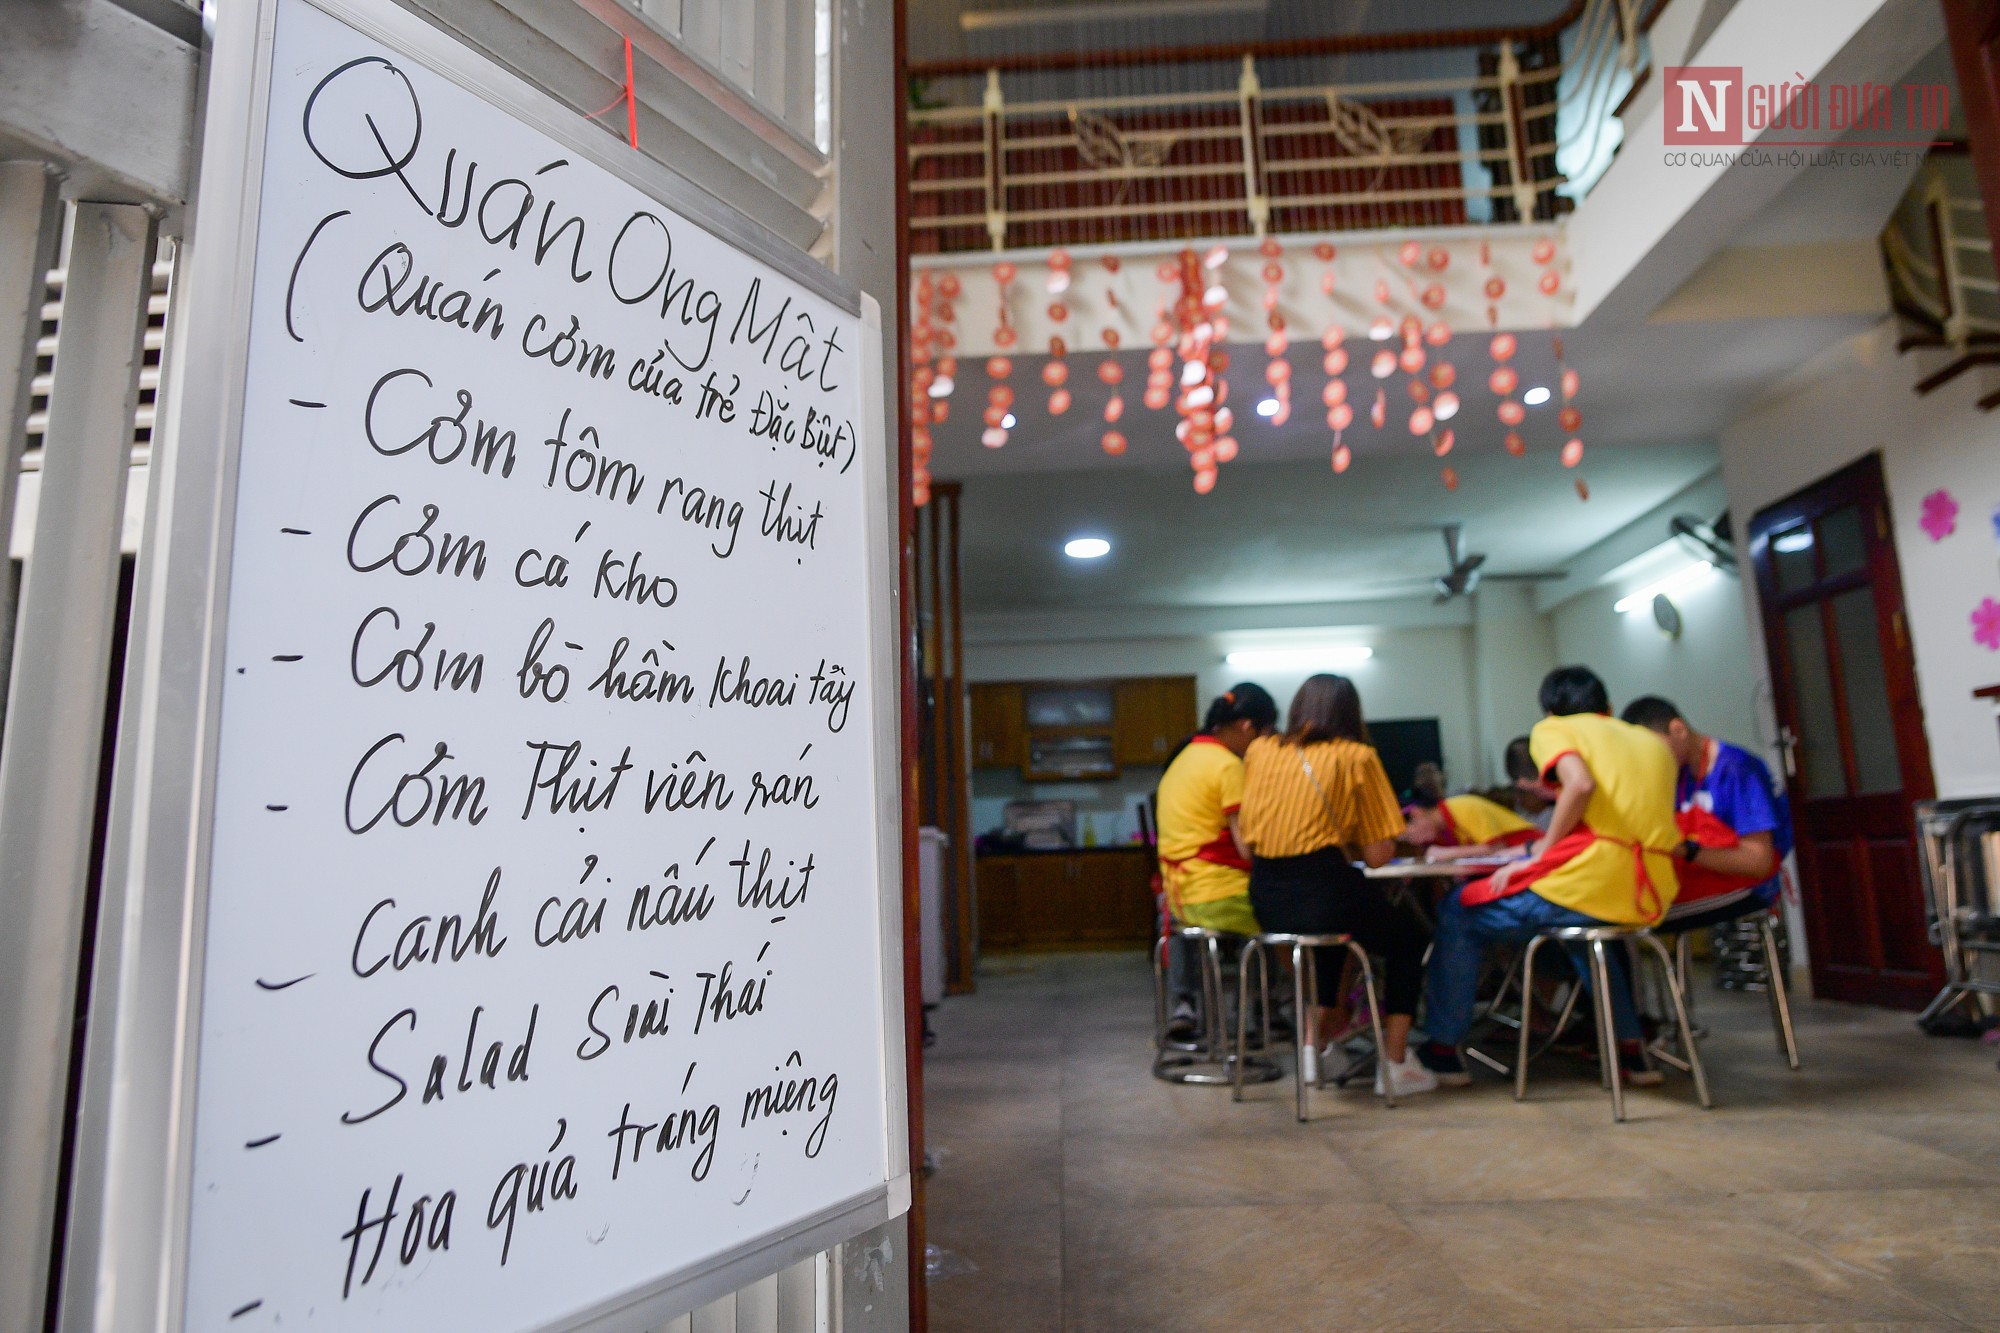 Quán Ong Mật
( Quán cơm của trẻ Đặc Biệt)
- Cơm tôm rang thịt
- Cơm cá kho
- Cơm bò hầm khoai tây
- Cơm Thịt viên rán
- Canh cải nấu thịt
- Salad Soài Thái
- Hoa quả tráng miệng
NGƯỜI ĐƯA TIN
CƠ QUAN CỦA HỘI LUẬT GIA VIỆT NAM